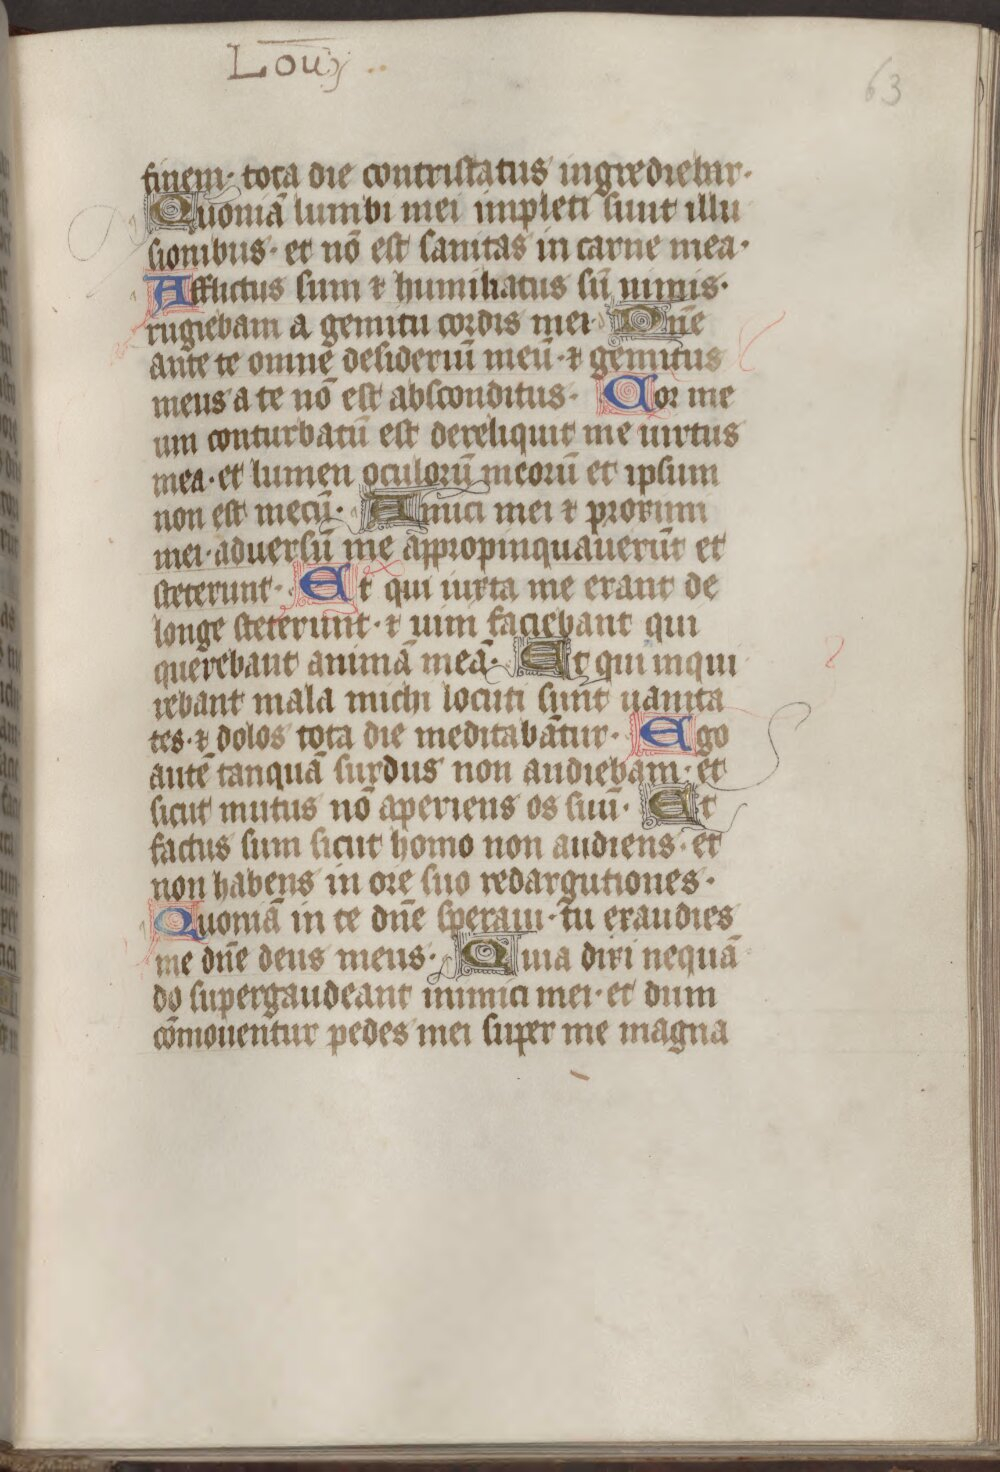 63
finem· tota die contristatus ingrediebar·
Quoniā lumbi mei impleti sunt illu
sionibus· et nō est sanitas in carne mea·
Afflictus sum ⁊ humiliatus sū nimis·
rugiebam a gemitu cordis mei· Dn̄e
ante te omne desideriū meū· ⁊ gemitus
meus a te nō est absconditus· Cor me
um conturbatū est dereliquit me uirtus
mea· et lumen oculorū meorū et ipsum
non est mecū· Amici mei ⁊ proximi
mei· aduersū me appropinquauerūt et
steterunt· Et qui iuxta me erant de
longe steterunt· ⁊ uim faciebant qui
querebant animā meā· Et qui inqui
rebant mala michi locuti sunt uanita
tes· ⁊ dolos tota die meditabātur· Ego
autē tanquā surdus non audiebam· et
sicut mutus nō aperiens os suū· Et
factus sum sicut homo non audiens· et
non habens in ore suo redargutiones·
Quoniā in te dn̄e speraui· tu exaudies
me dn̄e deus meus· Quia dixi nequā
do supergaudeant inimici mei· et dum
cōmouentur pedes mei super me magna